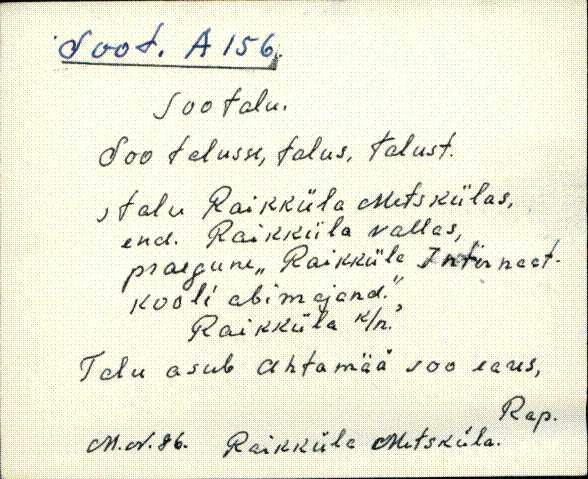 Soot. A 156.
Sootalu.
Soo talusse, talus, talust.
, talu Raikküla Metskülas,
end. Raikküla vallas,
praegune „Raikküla Internaat-
kooli abimajand.",
Raikküla k/n.
Talu asub Ahtamää soo ääres,
Rap.
M.N.86. Raikküla Metsküla.